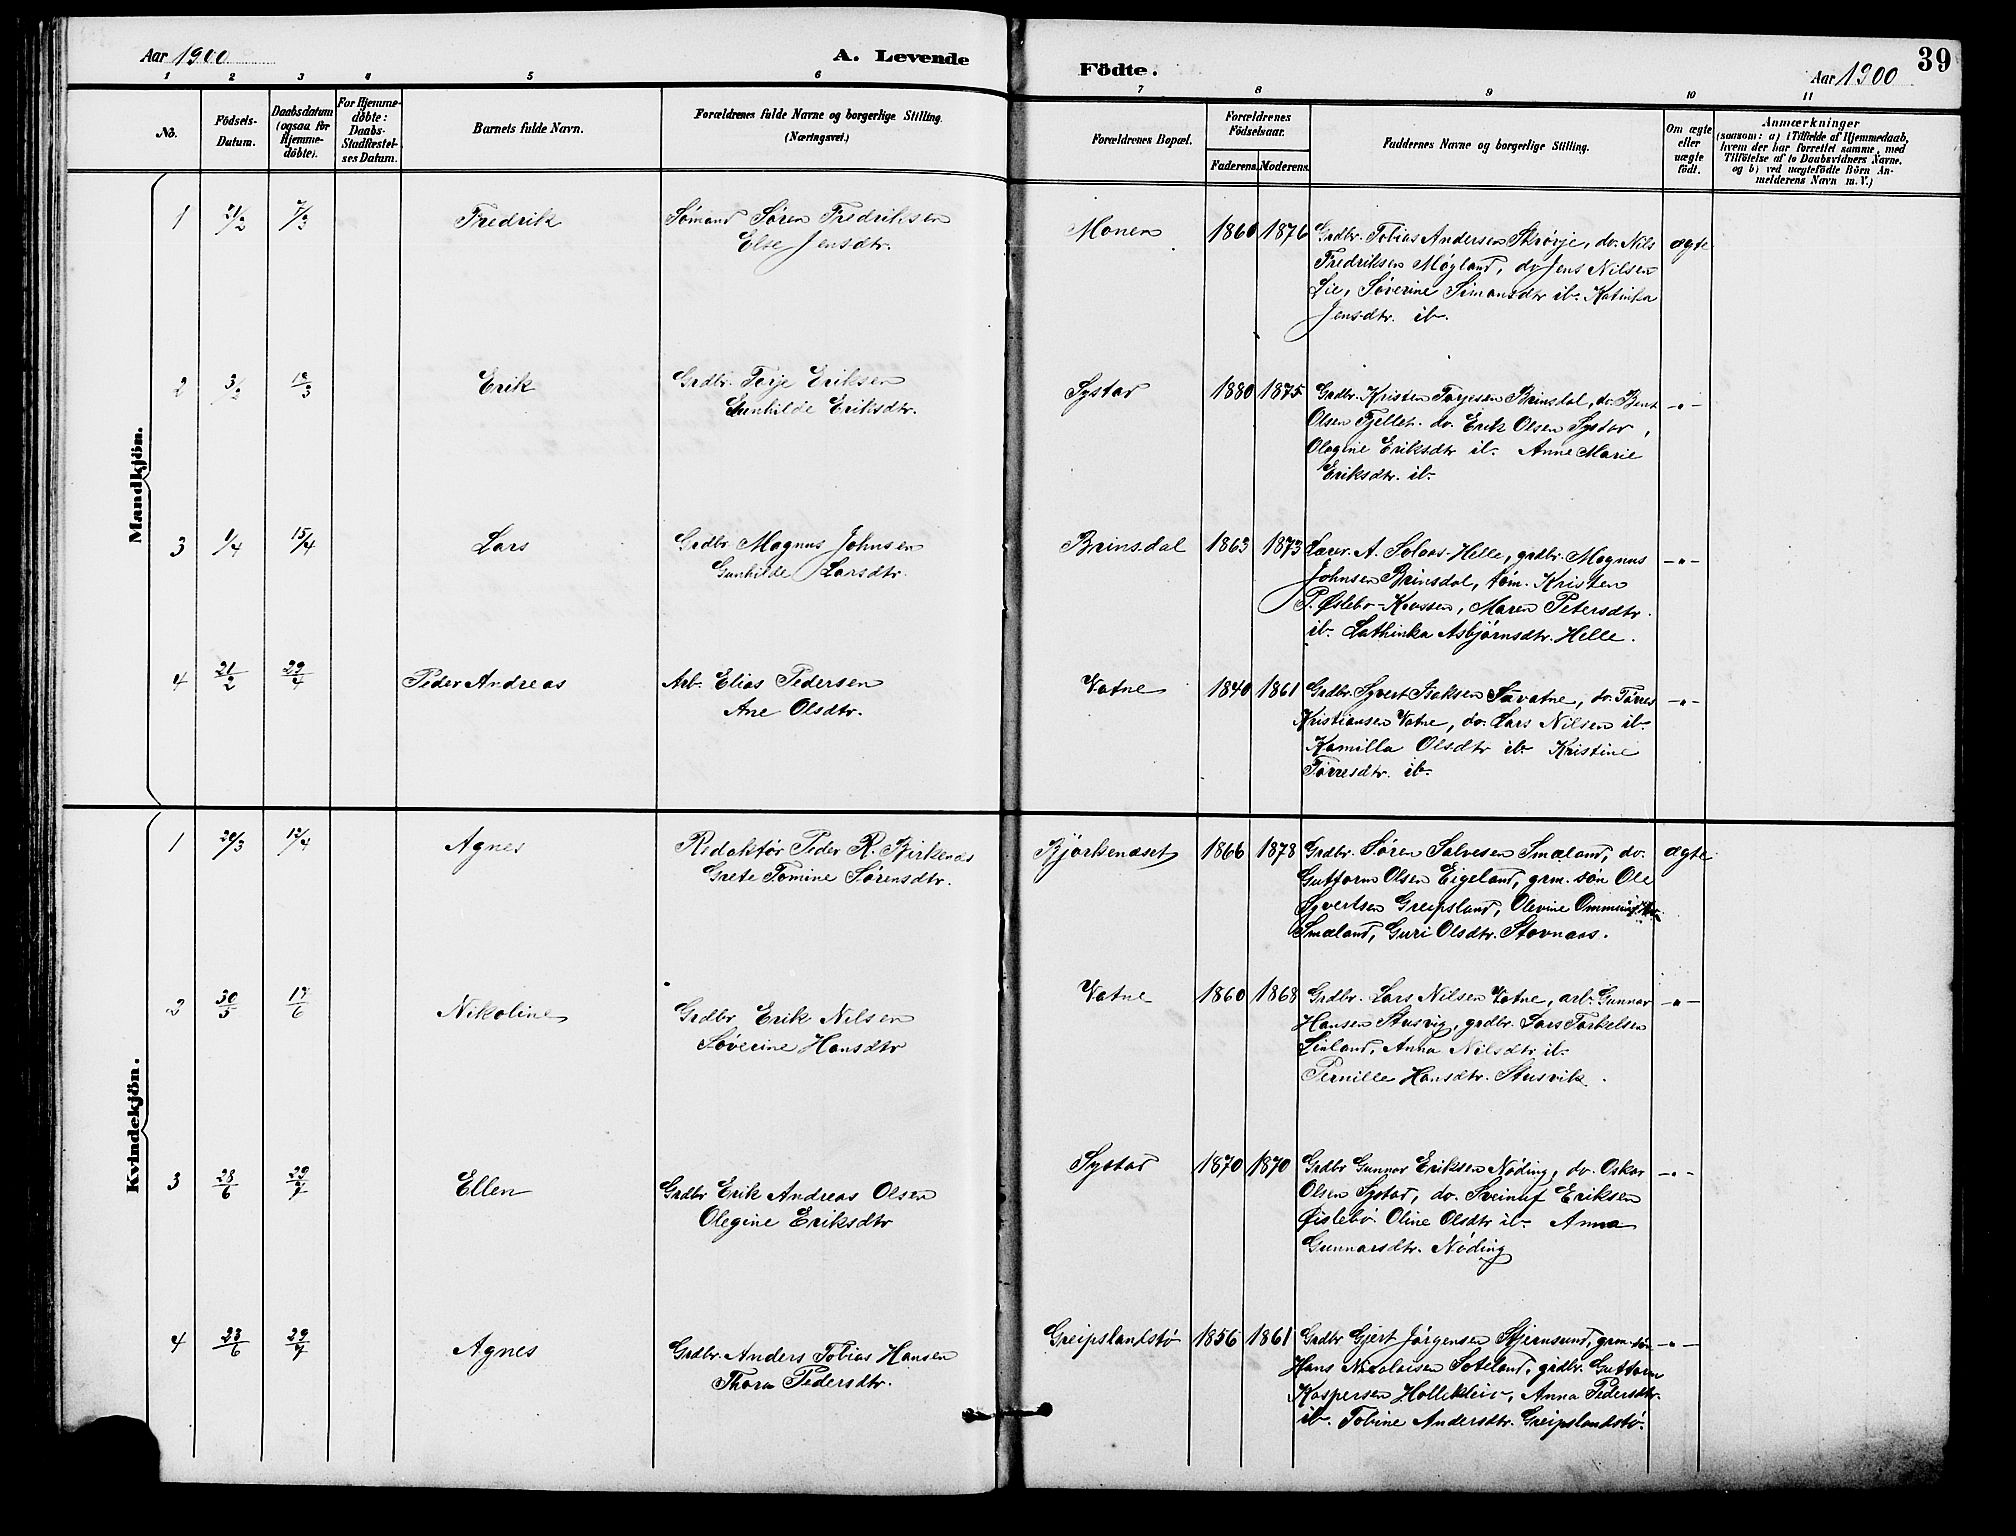 39
Aar 1900
A. Levende
Födte.
Aar 1900
1 2 3 4 5 6 7 8 9 10 11
No.
Födsels-Datum.
Daabsdatum (ogsaa for Hjemme-döbte).
For Hjemme-döbte: Daabs-Stadfæstel-ses Datum.
Barnets fulde Navn.
Forældrenes fulde Navne og borgerlige Stilling.
(Næringsvei.)
Forældrenes Bopæl.
Forældrenes Födselsaar.
Faderens. Moderens.
Faddernes Navne og borgerlige Stilling.
Om ægte eller uægte födt.
Anmærkninger
(saasom: a) i Tilfælde af Hjemmedaab,
hvem der har forrettet samme, med
Tilföielse af to Daabsvidners Navne.
og b) ved uægtefödte Börn An-
melderens Navn m. V.)
Mandkjön.
1 2/2 7/3 Fredrik
Sømand Søren Fredriksen
Else Jensdtr.
Monen 1860 1876
Grdbr. Tobias Andersen Skrøvje, do. Nils
Fredriksen Møgland, do Jens Nilsen
Lie, Søverine Simonsdtr ib. Katinka
Jensdtr. ib.
ægte
2 3/3 Erik
Grdbr. Torje Eriksen
Gunhilde Eriksdtr.
Systad 1880 1875
Grdbr. Kristen Torjesen Brinsdal, do. Bent
Olsen Fjellet. do. Erik Olsen Systar,
Olegine Eriksdtr ib. Anne Marie
Eriksdtr. ib.
—"—
3 1/4 15/4 Lars
Grdbr. Magnus Johnsen
Gunhilde Larsdtr.
Brinsdal 1863 1873
Lærer A. Solaas-Helle, grdbr. Magnus
Johnsen Brinsdal, tøm. Kristen
P. Øslebø-Kvossen, Maren Petersdtr.
ib. Kathinka Asbjørnsdtr. Helle.
—"—
4 21/2 29/4 Peder Andreas
Arb. Elias Pedersen
Ane Olsdtr.
Vatne 1840 1861
Grdbr. Syvert Isaksen Savatne, do. Tørres
Kristiansen Vatne, do. Lars Nilsen ib.
Kamilla Olsdtr ib. Kristine
Tørresdtr. ib.
—"—
Kvindekjön.
1 12/4 Agnes
Redaktør Peder R. Birkenæs
Grete Tomine Sørensdtr.
Bjørkenæset 1866 1878
Grdbr. Søren Salvesen Smæland, do.
Guttorm Olsen Eigeland, grm. søn Ole
Syvertsen Greipsland, Olevine
Smæland, Guri Olsdtr. Stavnaas.
ægte
2 30/5 17/6 Nikoline
Grdbr Erik Nilsen
Søverine Hansdtr
Vatne 1860 1868
Grdbr. Lars Nilsen Vatne, arb. Gunnar
Hansen Stusvig, grdbr. Lars Torkelsen
Linland, Anna Nilsdtr ib.
Pernille Hansdtr. Stusvik.
—"—
3 28/6 29/7 Ellen
Grdbr Erik Andreas Olsen
Olegine Eriksdtr
Systad 1870 1870
Grdbr Gunnar Eriksen Nøding, do. Oskar
Olsen Systad, do. Sveinuf Eriksen
Øislebø. Oline Olsdtr ib. Anna
Gunnarsdtr. Nøding
—"—
4 23/6 29/7 Agnes
Grdbr. Anders Tobias Hansen
Thora Pedersdtr.
Greipslandstø 1856 1861
Grdbr Gjert Jørgensen Stjernsund, grm. søn
Hans Nicolaisen Soteland, grdbr. Guttorm
Kaspersen Hollekleiv, Anna Pedersdtr.
ib. Tobine Andersdtr. Greipslandstø.
—"—